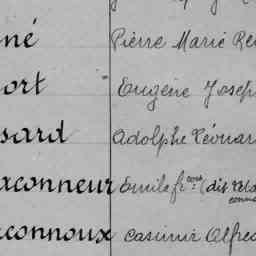 né Pierre Marie
ort Eugène Joseph
sard Adolphe Léonar
xconneur Emile fr cois (dit
connoux Casimir Alfred